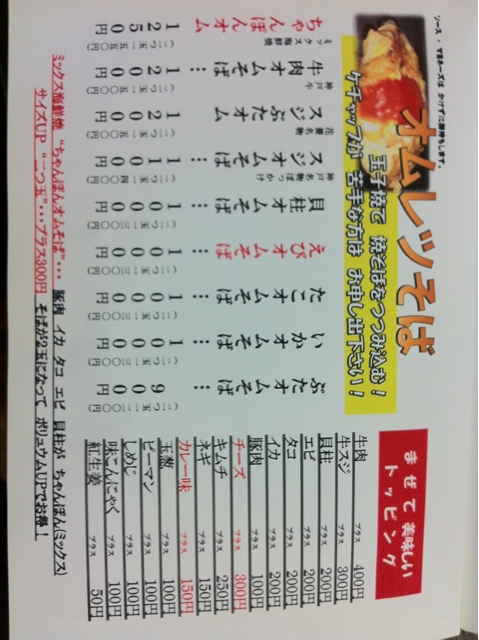 ソース・マヨネーズは かけずに御待ちします。
オムレツそば
玉子焼で 焼そばをつつみ込む!
ケチャップが 苦手な方は お申し出下さい!
ぶたオムそば… 900円
(二つ玉 一二〇〇円)
いかオムそば… 1000円
(二つ玉 一三〇〇円)
たこオムそば… 1000円
(二つ玉 一三〇〇円)
えびオムそば… 1000円
(二つ玉 一三〇〇円)
貝柱オムそば… 1000円
(二つ玉 一三〇〇円)
神戸名物ぼっかけ
スジオムそば… 1100円
(二つ玉 一四〇〇円)
花菱名物
スジぶたオム 1200円
(二つ玉 一五〇〇円)
神戸牛
牛肉オムそば… 1200円
(二つ玉 一五〇〇円)
ミックス海鮮焼
ちゃんぽんオム 1250円
(二つ玉 一五五〇円)
まぜて美味しい
トッピング
牛肉 プラス 400円
牛スジ プラス 300円
貝柱 プラス 200円
エビ プラス 200円
タコ プラス 200円
イカ プラス 200円
豚肉 プラス 100円
チーズ プラス 300円
キムチ プラス 250円
ネギ プラス 150円
カレー味 プラス 150円
玉葱 プラス 100円
ピーマン プラス 100円
しめじ プラス 100円
味こんにゃく プラス 100円
紅生姜 プラス 50円
ミックス海鮮焼 “ちゃんぽんオムそば”・・・ 豚肉 イカ タコ エビ 貝柱が ちゃんぽん(ミックス)
サイズUP “二つ玉”・・・プラス300円 そばが2玉になって ボリュウムUPでお得!